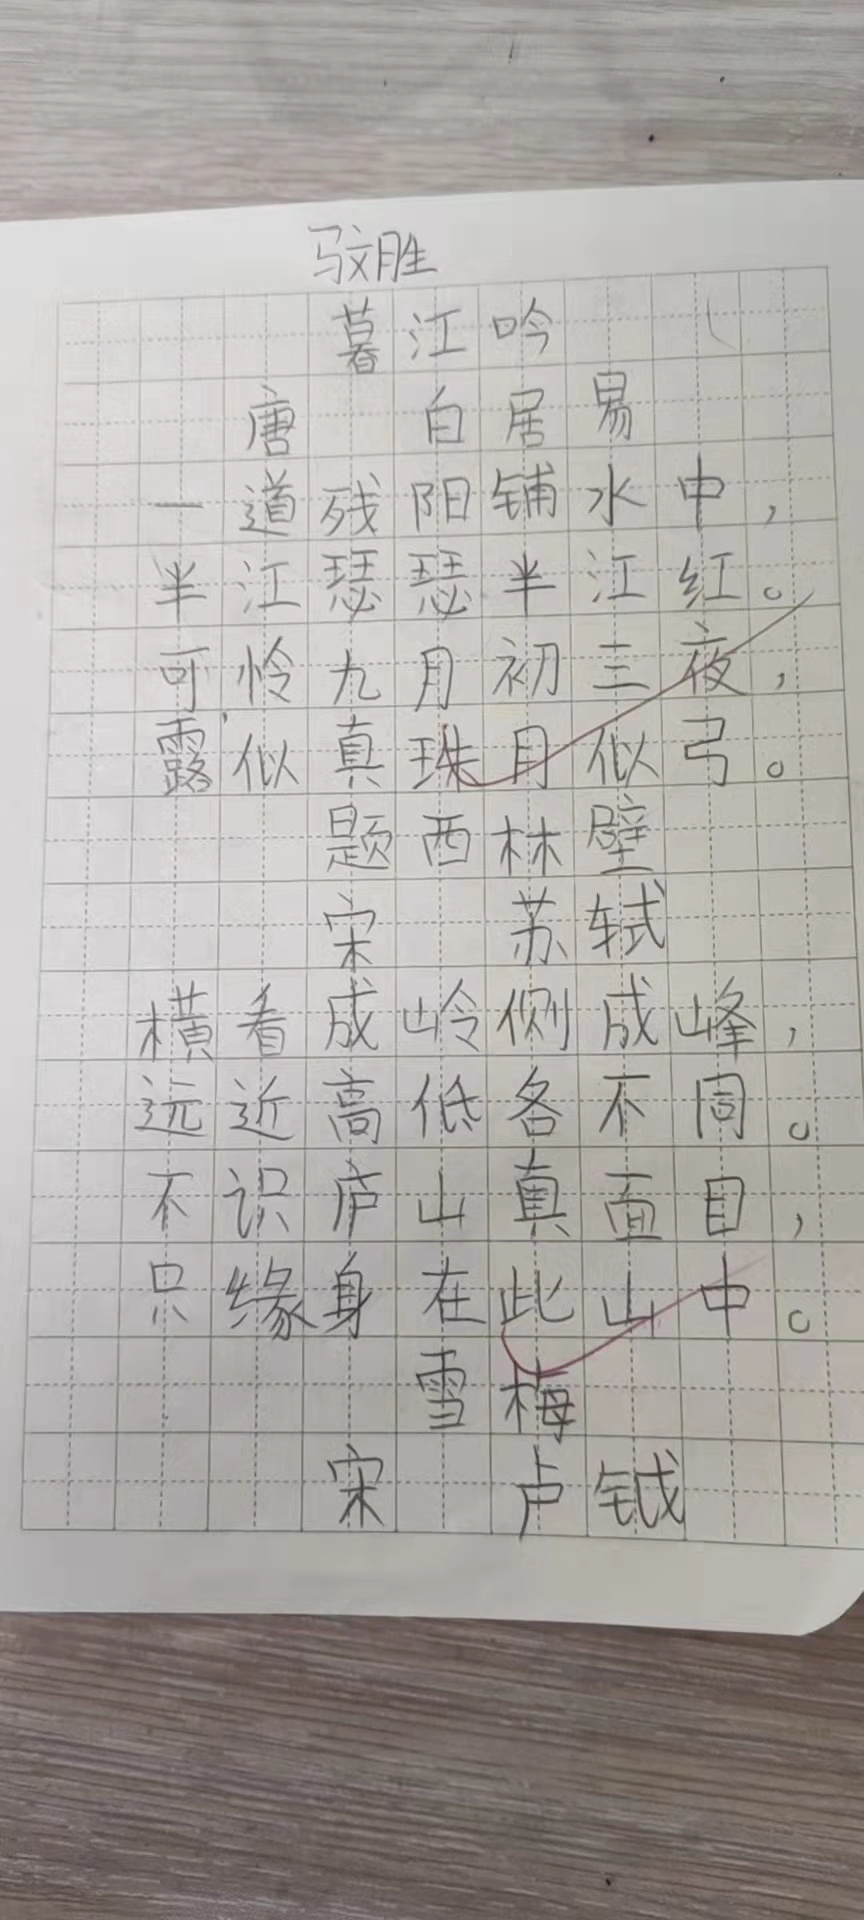 驭胜
暮江吟
唐 白居易
一道残阳铺水中，
半江瑟瑟半江红。
可怜九月初三夜，
露似真珠月似弓。
题西林壁
宋 苏轼
横看成岭侧成峰，
远近高低各不同。
不识庐山真面目，
只缘身在此山中。
雪梅
宋 卢钺